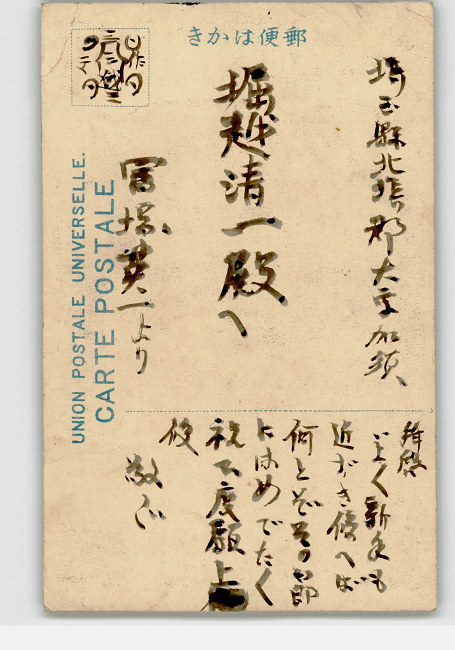 郵便はかき
埼玉縣北埼郡大字加須、
堀越清一殿へ
冨塚英一より
UNION POSTALE UNIVERSELLE.
CARTE POSTALE
拝啓
新年も
近づき候へば
何とぞその節
にはめでたく
祝下度願上
候
敬具